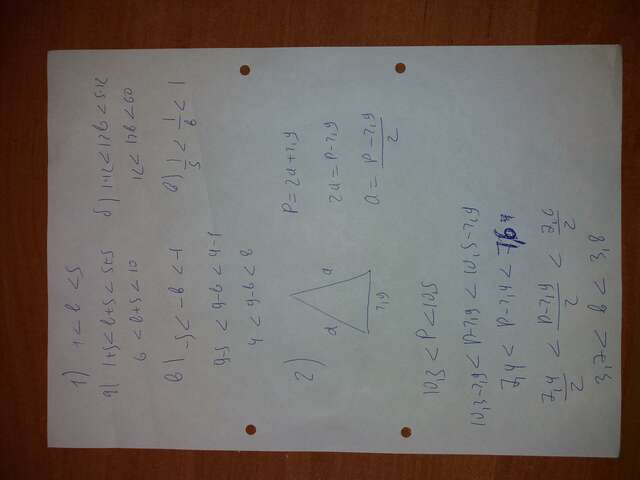 1) 1 < в < 5
а) 1+5 < в+5 < 5+5
6 < в+5 < 10
б) 1·12 < 12в < 5·12
12 < 12в < 60
в) -5 < -в < -1
9-5 < 9-в < 9-1
4 < 9-в < 8
г) 1/5 < 1/в < 1
2)
a a
2,9
P = 2a+2,9
2a = P-2,9
a = (P-2,9)/2
10,3 < P < 10,5
10,3-2,9 < P-2,9 < 10,5-2,9
7,4 < P-2,9 < 7,6
7,4/2 < (P-2,9)/2 < 7,6/2
3,7 < в < 3,8